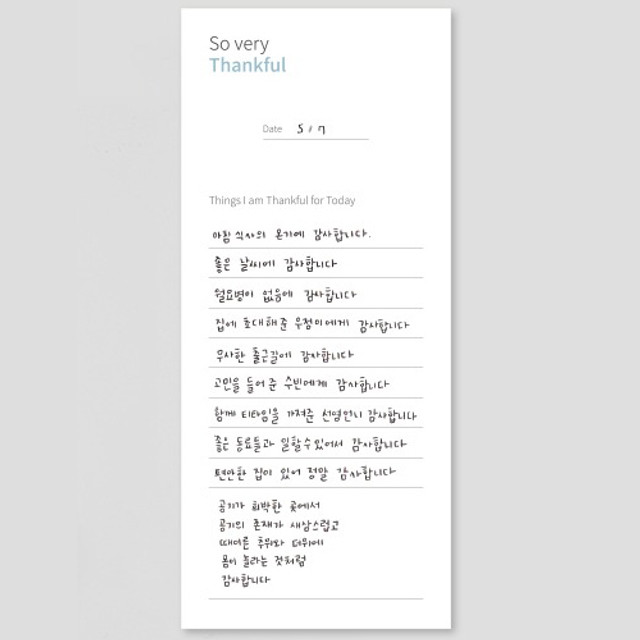 So very
Thankful
Date 5/7
Things I am Thankful for Today
아침 식사의 온기에 감사합니다.
좋은 날씨에 감사합니다
월요병이 없음에 감사합니다
집에 초대해준 우정이에게 감사합니다
무사한 출근길에 감사합니다
고민을 들어 준 수빈에게 감사합니다
함께 티타임을 가져준 선영언니 감사합니다
좋은 동료들과 일할 수 있어서 감사합니다
편안한 집이 있어 정말 감사합니다
공기가 희박한 곳에서
공기의 존재가 새삼스럽고
때이른 추위와 더위에
몸이 놀라는 것처럼
감사합니다